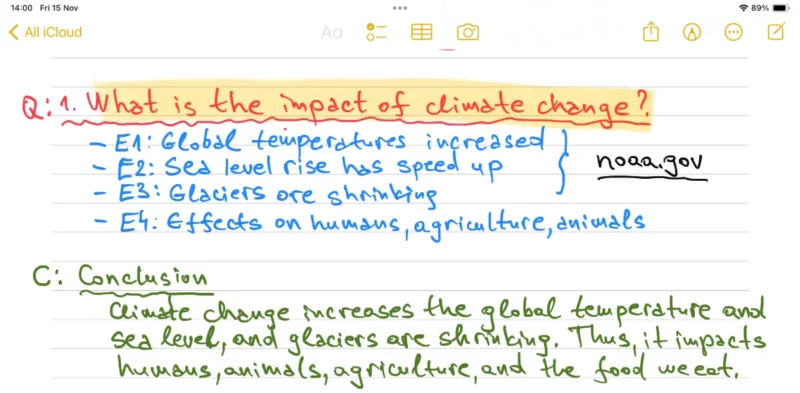 14:00 Fri 15 Nov
89%
All iCloud
Aa
Q: 1. What is the impact of climate change?
- E1: Global temperatures increased
- E2: Sea level rise has speed up
noaa.gov
- E3: Glaciers are shrinking
- E4: Effects on humans, agriculture, animals
C: Conclusion
Climate change increases the global temperature and
sea level, and glaciers are shrinking. Thus, it impacts
humans, animals, agriculture, and the food we eat.